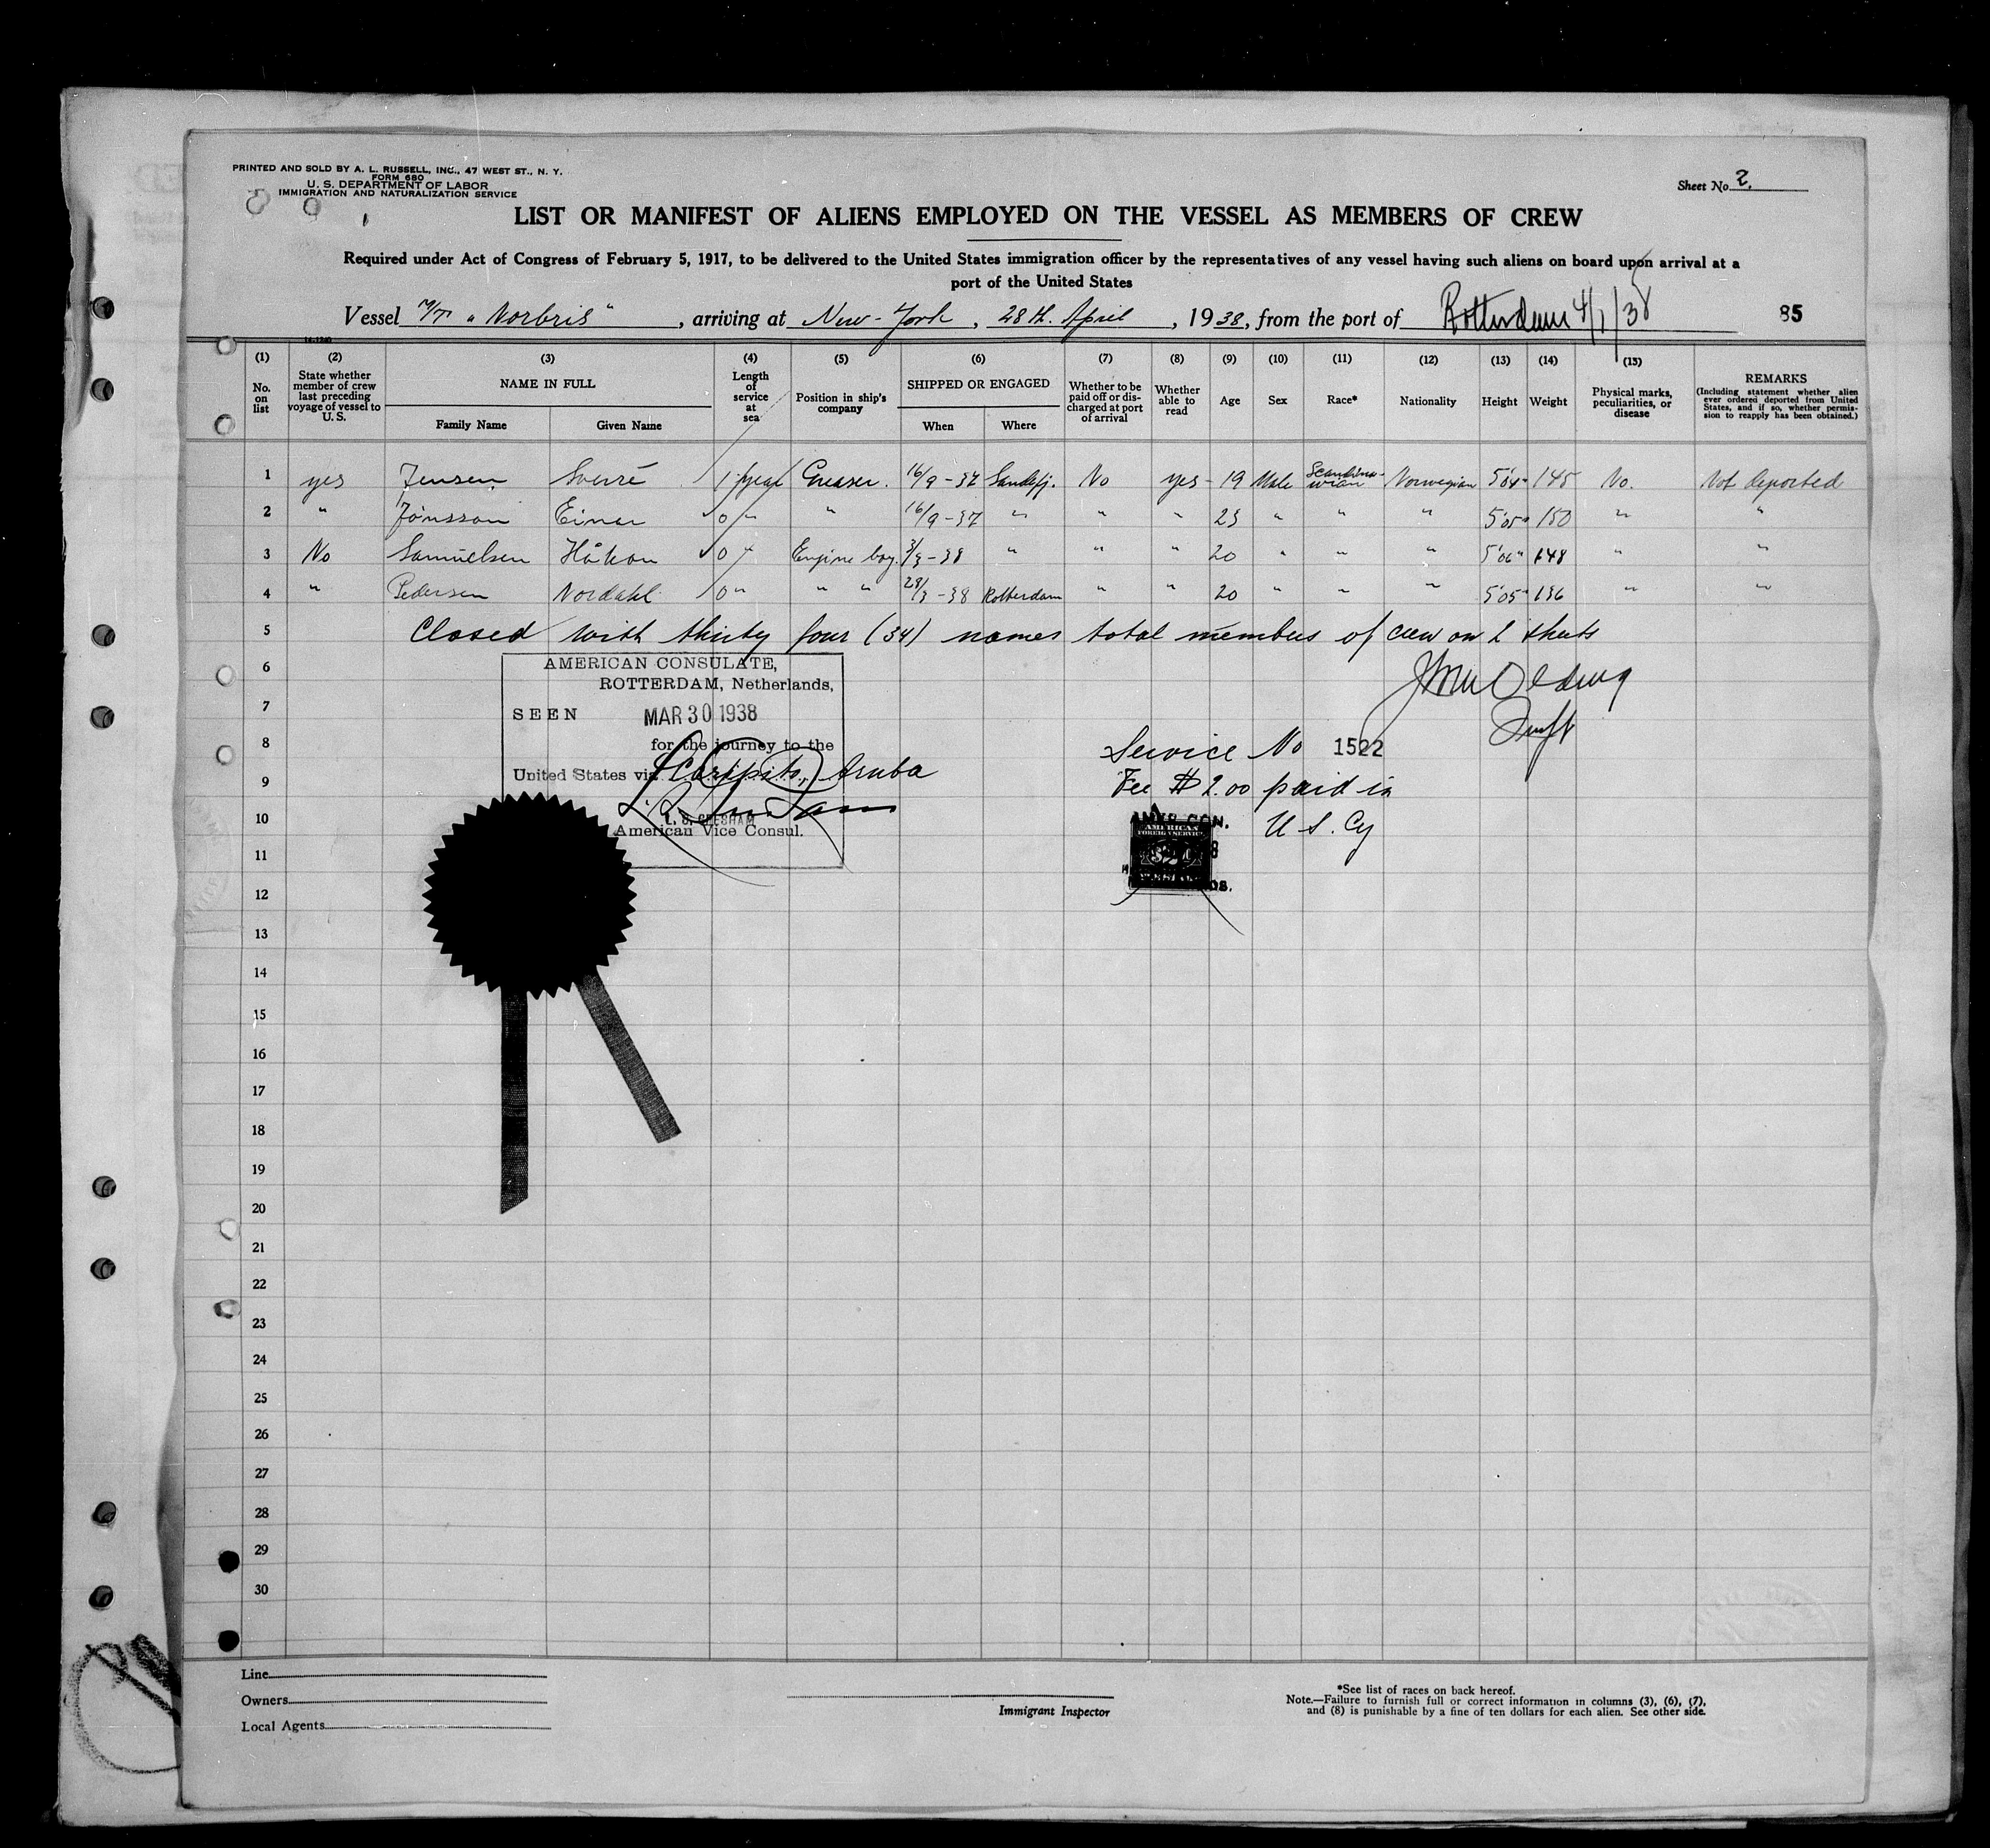 PRINTED AND SOLD BY A. L. RUSSELL, INC., 47 WEST ST., N. Y.
FORM 680
U. S. DEPARTMENT OF LABOR
IMMIGRATION AND NATURALIZATION SERVICE
Sheet No. 2.
LIST OR MANIFEST OF ALIENS EMPLOYED ON THE VESSEL AS MEMBERS OF CREW
Required under Act of Congress of February 5, 1917, to be delivered to the United States immigration officer by the representatives of any vessel having such aliens on board upon arrival at a
port of the United States
Vessel M/T "Norbris", arriving at New-York, 28th. April, 1938, from the port of Rotterdam 4/1/38 85
(1) (2) (3) (4) (5) (6) (7) (8) (9) (10) (11) (12) (13) (14) (15)
No. on list
State whether member of crew last preceding voyage of vessel to U. S.
NAME IN FULL
Family Name Given Name
Length of service at sea
Position in ship's company
SHIPPED OR ENGAGED
When Where
Whether to be paid off or discharged at port of arrival
Whether able to read
Age Sex Race* Nationality Height Weight
Physical marks, peculiarities, or disease
REMARKS
(Including statement whether alien ever ordered deported from United States, and if so, whether permission to reapply has been obtained.)
1 yes Jensen Sverre 1 year Greaser. 16/9-37 Sandefj. No yes 19 Male Scandinavian Norwegian 5'04" 145 No. Not deported
2 " Jonsson Einar 0 " " 16/9-37 " " " 23 " " " 5'05" 150 " "
3 No Samuelsen Håkon 0 " Engine boy. 3/3-38 " " " 20 " " " 5'06" 148 " "
4 " Pedersen Nordahl 0 " " " 28/3-38 Rotterdam " " 20 " " " 5'05" 136 " "
5 Closed with thirty four (34) names total members of crew on 2 sheets
6
7
8
9
10
11
12
13
14
15
16
17
18
19
20
21
22
23
24
25
26
27
28
29
30
AMERICAN CONSULATE,
ROTTERDAM, Netherlands,
SEEN MAR 30 1938
for the journey to the
United States via Caripito, Aruba
American Vice Consul.
Service No 1522
Fee $2.00 paid in
U S. Cy
AMERICAN
FOREIGN SERVICE
Line
Owners
Local Agents
Immigrant Inspector
*See list of races on back hereof.
Note.—Failure to furnish full or correct information in columns (3), (6), (7),
and (8) is punishable by a fine of ten dollars for each alien. See other side.